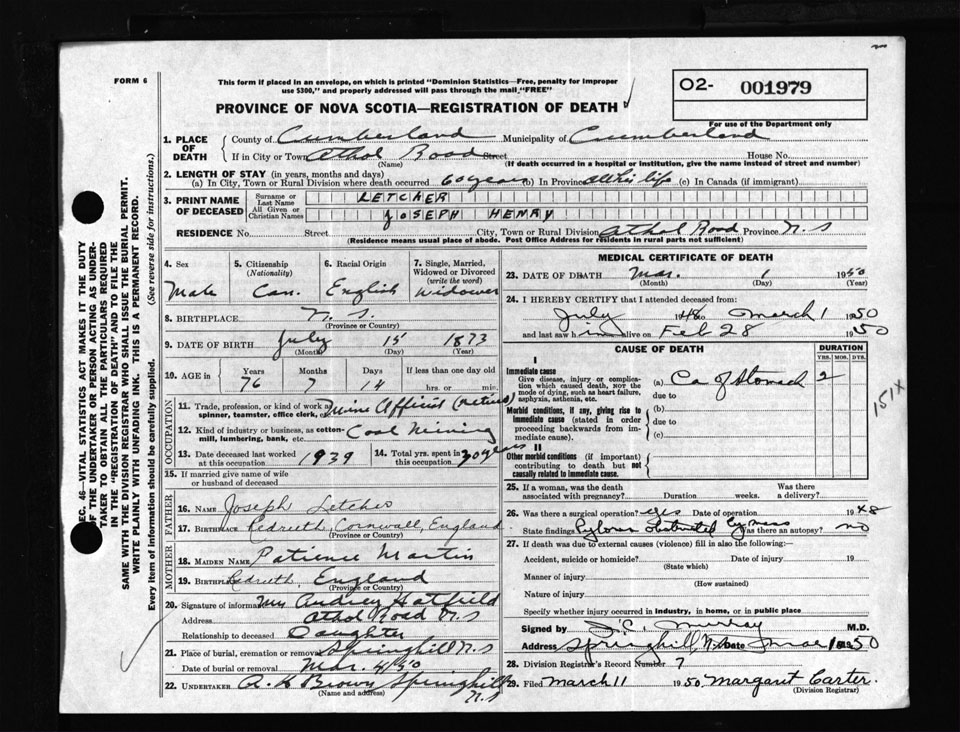 FORM 6
This form if placed in an envelope, on which is printed "Dominion Statistics—Free, penalty for improper
use $300," and properly addressed will pass through the mail "FREE"
PROVINCE OF NOVA SCOTIA—REGISTRATION OF DEATH
O2- 001979
For use of the Department only
1. PLACE OF DEATH
County of Cumberland Municipality of Cumberland
If in City or Town Athol Road Street House No.
(Name) (If death occurred in a hospital or institution, give the name instead of street and number)
2. LENGTH OF STAY (in years, months and days)
(a) In City, Town or Rural Division where death occurred 60 years (b) In Province all his life (c) In Canada (if immigrant)
3. PRINT NAME OF DECEASED
Surname or Last Name LETCHER
All Given or Christian Names JOSEPH HENRY
RESIDENCE No. Street City, Town or Rural Division Athol Road Province N.S
(Residence means usual place of abode. Post Office Address for residents in rural parts not sufficient)
4. Sex Male
5. Citizenship (Nationality) Can.
6. Racial Origin English
7. Single, Married, Widowed or Divorced (write the word) Widower
8. BIRTHPLACE N.S.
(Province or Country)
9. DATE OF BIRTH July 15 1873
(Month) (Day) (Year)
10. AGE in Years Months Days If less than one day old
76 7 14 hrs. or min.
OCCUPATION
11. Trade, profession, or kind of work as spinner, teamster, office clerk, etc. Mine Official (retired)
12. Kind of industry or business, as cotton-mill, lumbering, bank, etc. Coal Mining
13. Date deceased last worked at this occupation 1939
14. Total yrs. spent in this occupation 30 years
15. If married give name of wife or husband of deceased
FATHER
16. NAME Joseph Letcher
17. BIRTHPLACE Redreuth, Cornwall, England
(Province or Country)
MOTHER
18. MAIDEN NAME Patience Martin
19. BIRTHPLACE Redreuth, England
(Province or Country)
20. Signature of informant Mrs Audrey Hatfield
Address Athol Road N.S
Relationship to deceased Daughter
21. Place of burial, cremation or removal Springhill N.S
Date of burial or removal Mar. 4/50
22. UNDERTAKER A. K Brown Springhill
(Name and address) N.S
MEDICAL CERTIFICATE OF DEATH
23. DATE OF DEATH Mar. 1 1950
(Month) (Day) (Year)
24. I HEREBY CERTIFY that I attended deceased from:
July 1948 to March 1 1950
and last saw him alive on Feb 28 1950
CAUSE OF DEATH
DURATION
YRS. MOS. DYS.
I
Immediate cause
Give disease, injury or complication which caused death, NOT the mode of dying, such as heart failure, asphyxia, asthenia, etc.
(a) Ca of Stomach 2
due to
Morbid conditions, if any, giving rise to immediate cause (stated in order proceeding backwards from immediate cause).
(b)
due to
(c)
II
Other morbid conditions (if important) contributing to death but not causally related to immediate cause.
151X
25. If a woman, was the death associated with pregnancy? Duration weeks. Was there a delivery?
26. Was there a surgical operation? yes Date of operation 1948
State findings Pylorus obstructed by mass Was there an autopsy? no
27. If death was due to external causes (violence) fill in also the following:—
Accident, suicide or homicide? Date of injury 19
(State which)
Manner of injury
(How sustained)
Nature of injury
Specify whether injury occurred in industry, in home, or in public place
Signed by J.C. Murray M.D.
Address Springhill, N.S. Date Mar 1 1950
28. Division Registrar's Record Number 7
29. Filed March 11 1950. Margaret Carter.
(Division Registrar)
SEC. 46—VITAL STATISTICS ACT MAKES IT THE DUTY
OF THE UNDERTAKER OR PERSON ACTING AS UNDER-
TAKER TO OBTAIN ALL THE PARTICULARS REQUIRED
IN THE "REGISTRATION OF DEATH" AND TO FILE THE
SAME WITH THE DIVISION REGISTRAR WHO SHALL ISSUE THE BURIAL PERMIT.
WRITE PLAINLY WITH UNFADING INK. THIS IS A PERMANENT RECORD.
Every item of information should be carefully supplied. (See reverse side for instructions.)